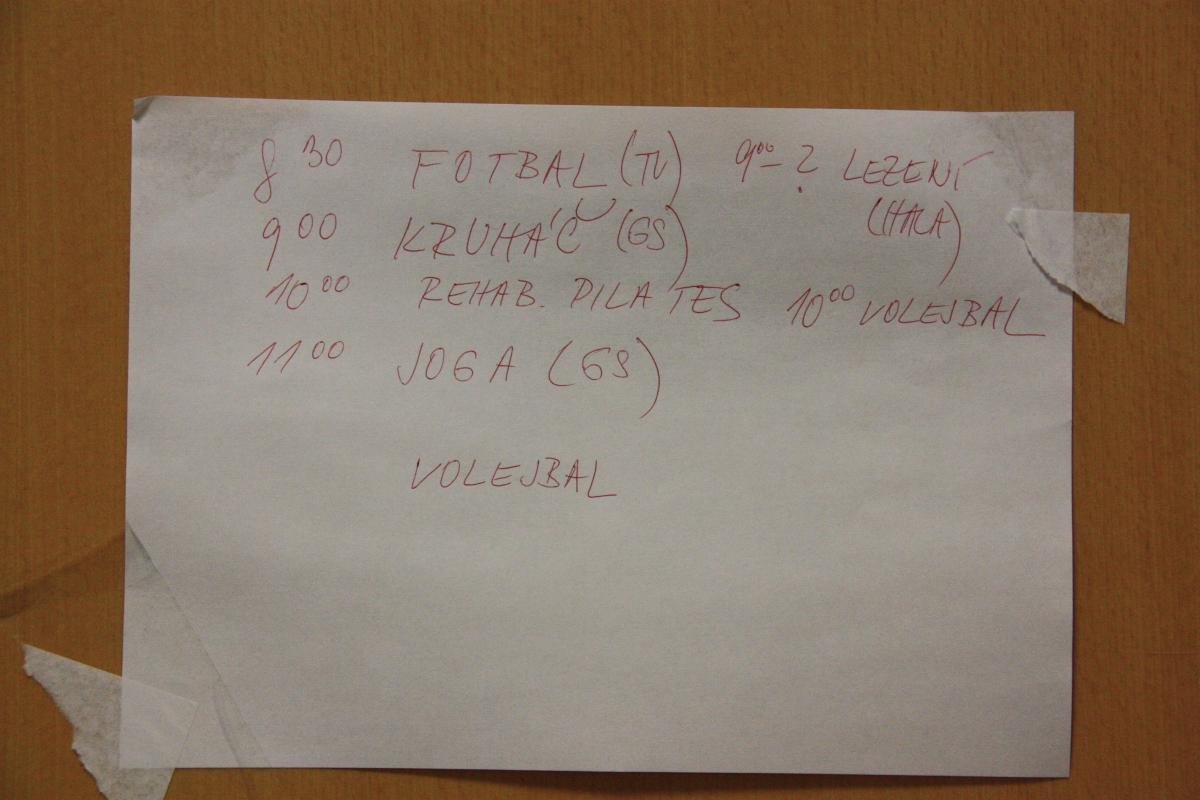 8 30 FOTBAL (TV) 9 00 - ? LEZENÍ
(HALA)
9 00 KRUHÁČ (GS)
10 00 REHAB. PILATES 10 00 VOLEJBAL
11 00 JOGA (GS)
VOLEJBAL